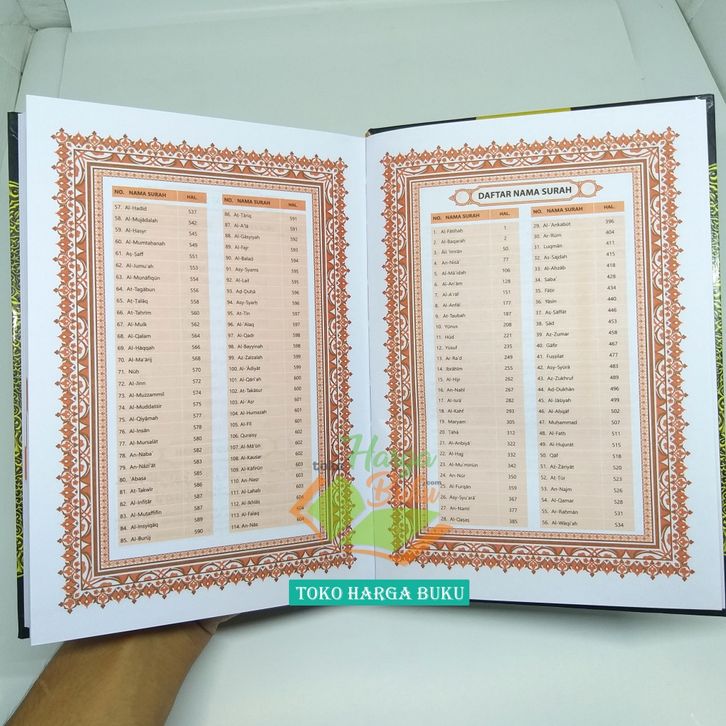 NO. NAMA SURAH HAL.
57. Al-Hadīd 537
58. Al-Mujādalah 542
59. Al-Hasyr 545
60. Al-Mumtahanah 549
61. Aṣ-Ṣaff 551
62. Al-Jumu'ah 553
63. Al-Munāfiqūn 554
64. At-Tagābun 556
65. At-Talāq 558
66. At-Tahrim 560
67. Al-Mulk 562
68. Al-Qalam 564
69. Al-Hāqqah 566
70. Al-Ma'ārij 568
71. Nūh 570
72. Al-Jinn 572
73. Al-Muzzammil 574
74. Al-Muddaṡṡir 575
75. Al-Qiyāmah 577
76. Al-Insān 578
77. Al-Mursalāt 580
78. An-Naba 582
79. An-Nāzi'āt 583
80. 'Abasa 585
81. At-Takwīr 586
82. Al-Infiṭār 587
83. Al-Muṭaffifīn 587
84. Al-Insyiqāq 589
85. Al-Burūj 590
NO. NAMA SURAH HAL.
86. Aṭ-Ṭāriq 591
87. Al-A'lā 591
88. Al-Gāsyiyah
89. Al-Fajr 593
90. Al-Balad 594
91. Asy-Syams 595
92. Al-Lail 595
93. Aḍ-Ḍuhā 596
94. Asy-Syarh 596
95. At-Tīn 597
96. Al-'Alaq 597
97. Al-Qadr 598
98. Al-Bayyinah 598
99. Az-Zalzalah 599
100. Al-'Ādiyāt
101. Al-Qāri'ah 600
102. At-Takāṡur 600
103. Al-'Aṣr 601
104. Al-Humazah 601
105. Al-Fīl 601
106. Quraisy 602
107. Al-Mā'ūn 602
108. Al-Kauṡar 602
109. Al-Kāfirūn 603
110. An-Naṣr 603
111. Al-Lahab 603
112. Al-Ikhlāṣ 604
113. Al-Falaq 604
114. An-Nās 604
DAFTAR NAMA SURAH
NO. NAMA SURAH HAL.
1. Al-Fātihah 1
2. Al-Baqarah 2
3. Āli 'Imrān 50
4. An-Nisā' 77
5. Al-Mā'idah 106
6. Al-An'ām 128
7. Al-A'rāf 151
8. Al-Anfāl 177
9. At-Taubah 187
10. Yūnus 208
11. Hūd 221
12. Yūsuf 235
13. Ar-Ra'd 249
14. Ibrāhīm 255
15. Al-Hijr 262
16. An-Nahl 267
17. Al-Isrā' 282
18. Al-Kahf 293
19. Maryam 305
20. Ṭāhā 312
21. Al-Anbiyā' 322
22. Al-Hajj 332
23. Al-Mu'minūn 342
24. An-Nūr 350
25. Al-Furqān 359
26. Asy-Syu'arā 367
27. An-Naml 377
28. Al-Qaṣaṣ 385
NO. NAMA SURAH HAL.
29. Al-'Ankabūt 396
30. Ar-Rūm 404
31. Luqmān 411
32. As-Sajdah 415
33. Al-Ahzāb 418
34. Saba' 428
35. Fāṭir 434
36. Yāsīn 440
37. Aṣ-Ṣāffāt 446
38. Ṣād 453
39. Az-Zumar 458
40. Gāfir 467
41. Fuṣṣilat 477
42. Asy-Syūrā 483
43. Az-Zukhruf 489
44. Ad-Dukhān 496
45. Al-Jāṡiyah 499
46. Al-Ahqāf 502
47. Muhammad 507
48. Al-Fath 511
49. Al-Hujurāt 515
50. Qāf 518
51. Aż-Żāriyāt 520
52. Aṭ-Ṭūr 523
53. An-Najm 526
54. Al-Qamar 528
55. Ar-Rahmān 531
56. Al-Wāqi'ah 534
toko
Harga
Buku
.com
TOKO HARGA BUKU